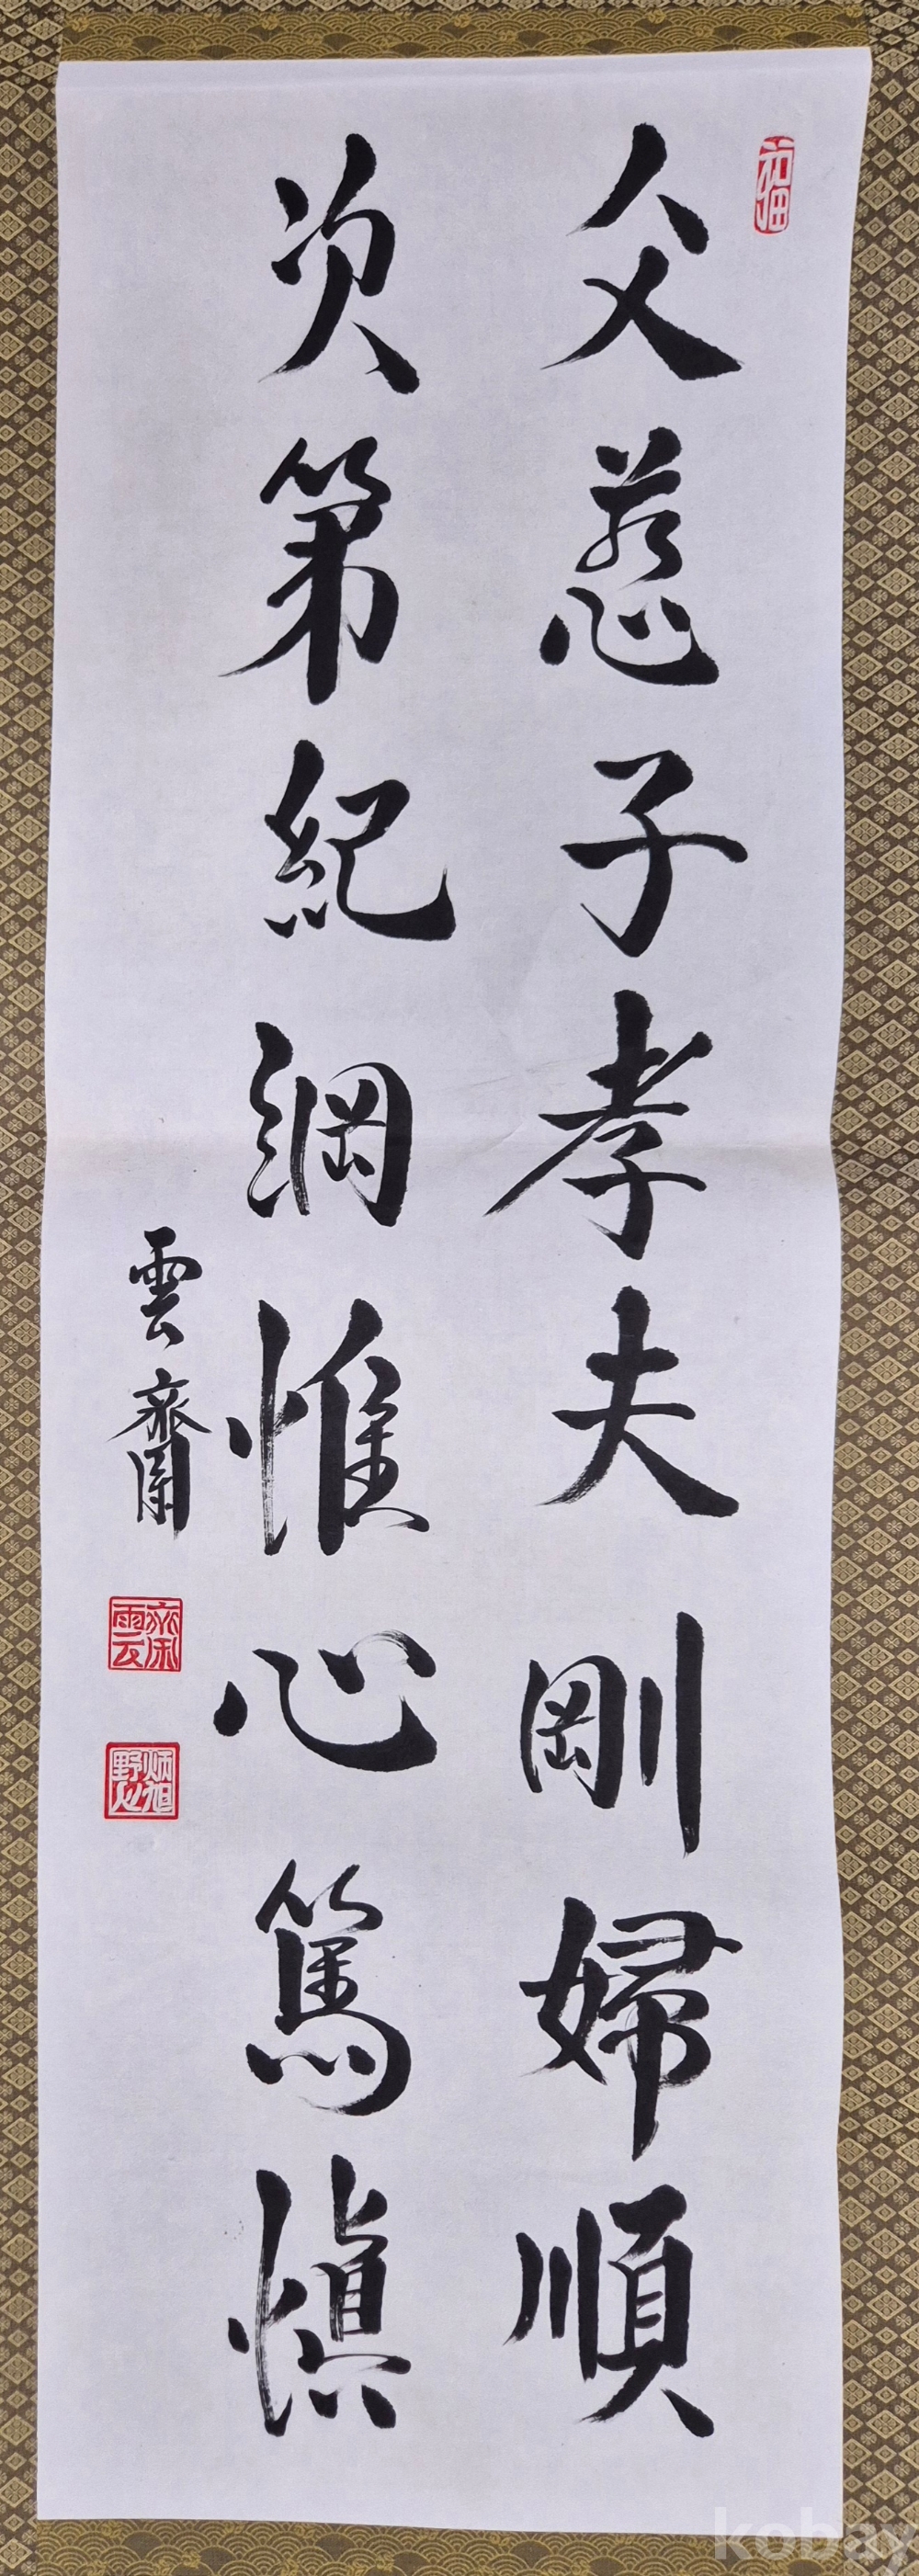 父慈子孝夫剛婦順
次第紀綱惟心篤慎
雲齋
kobay